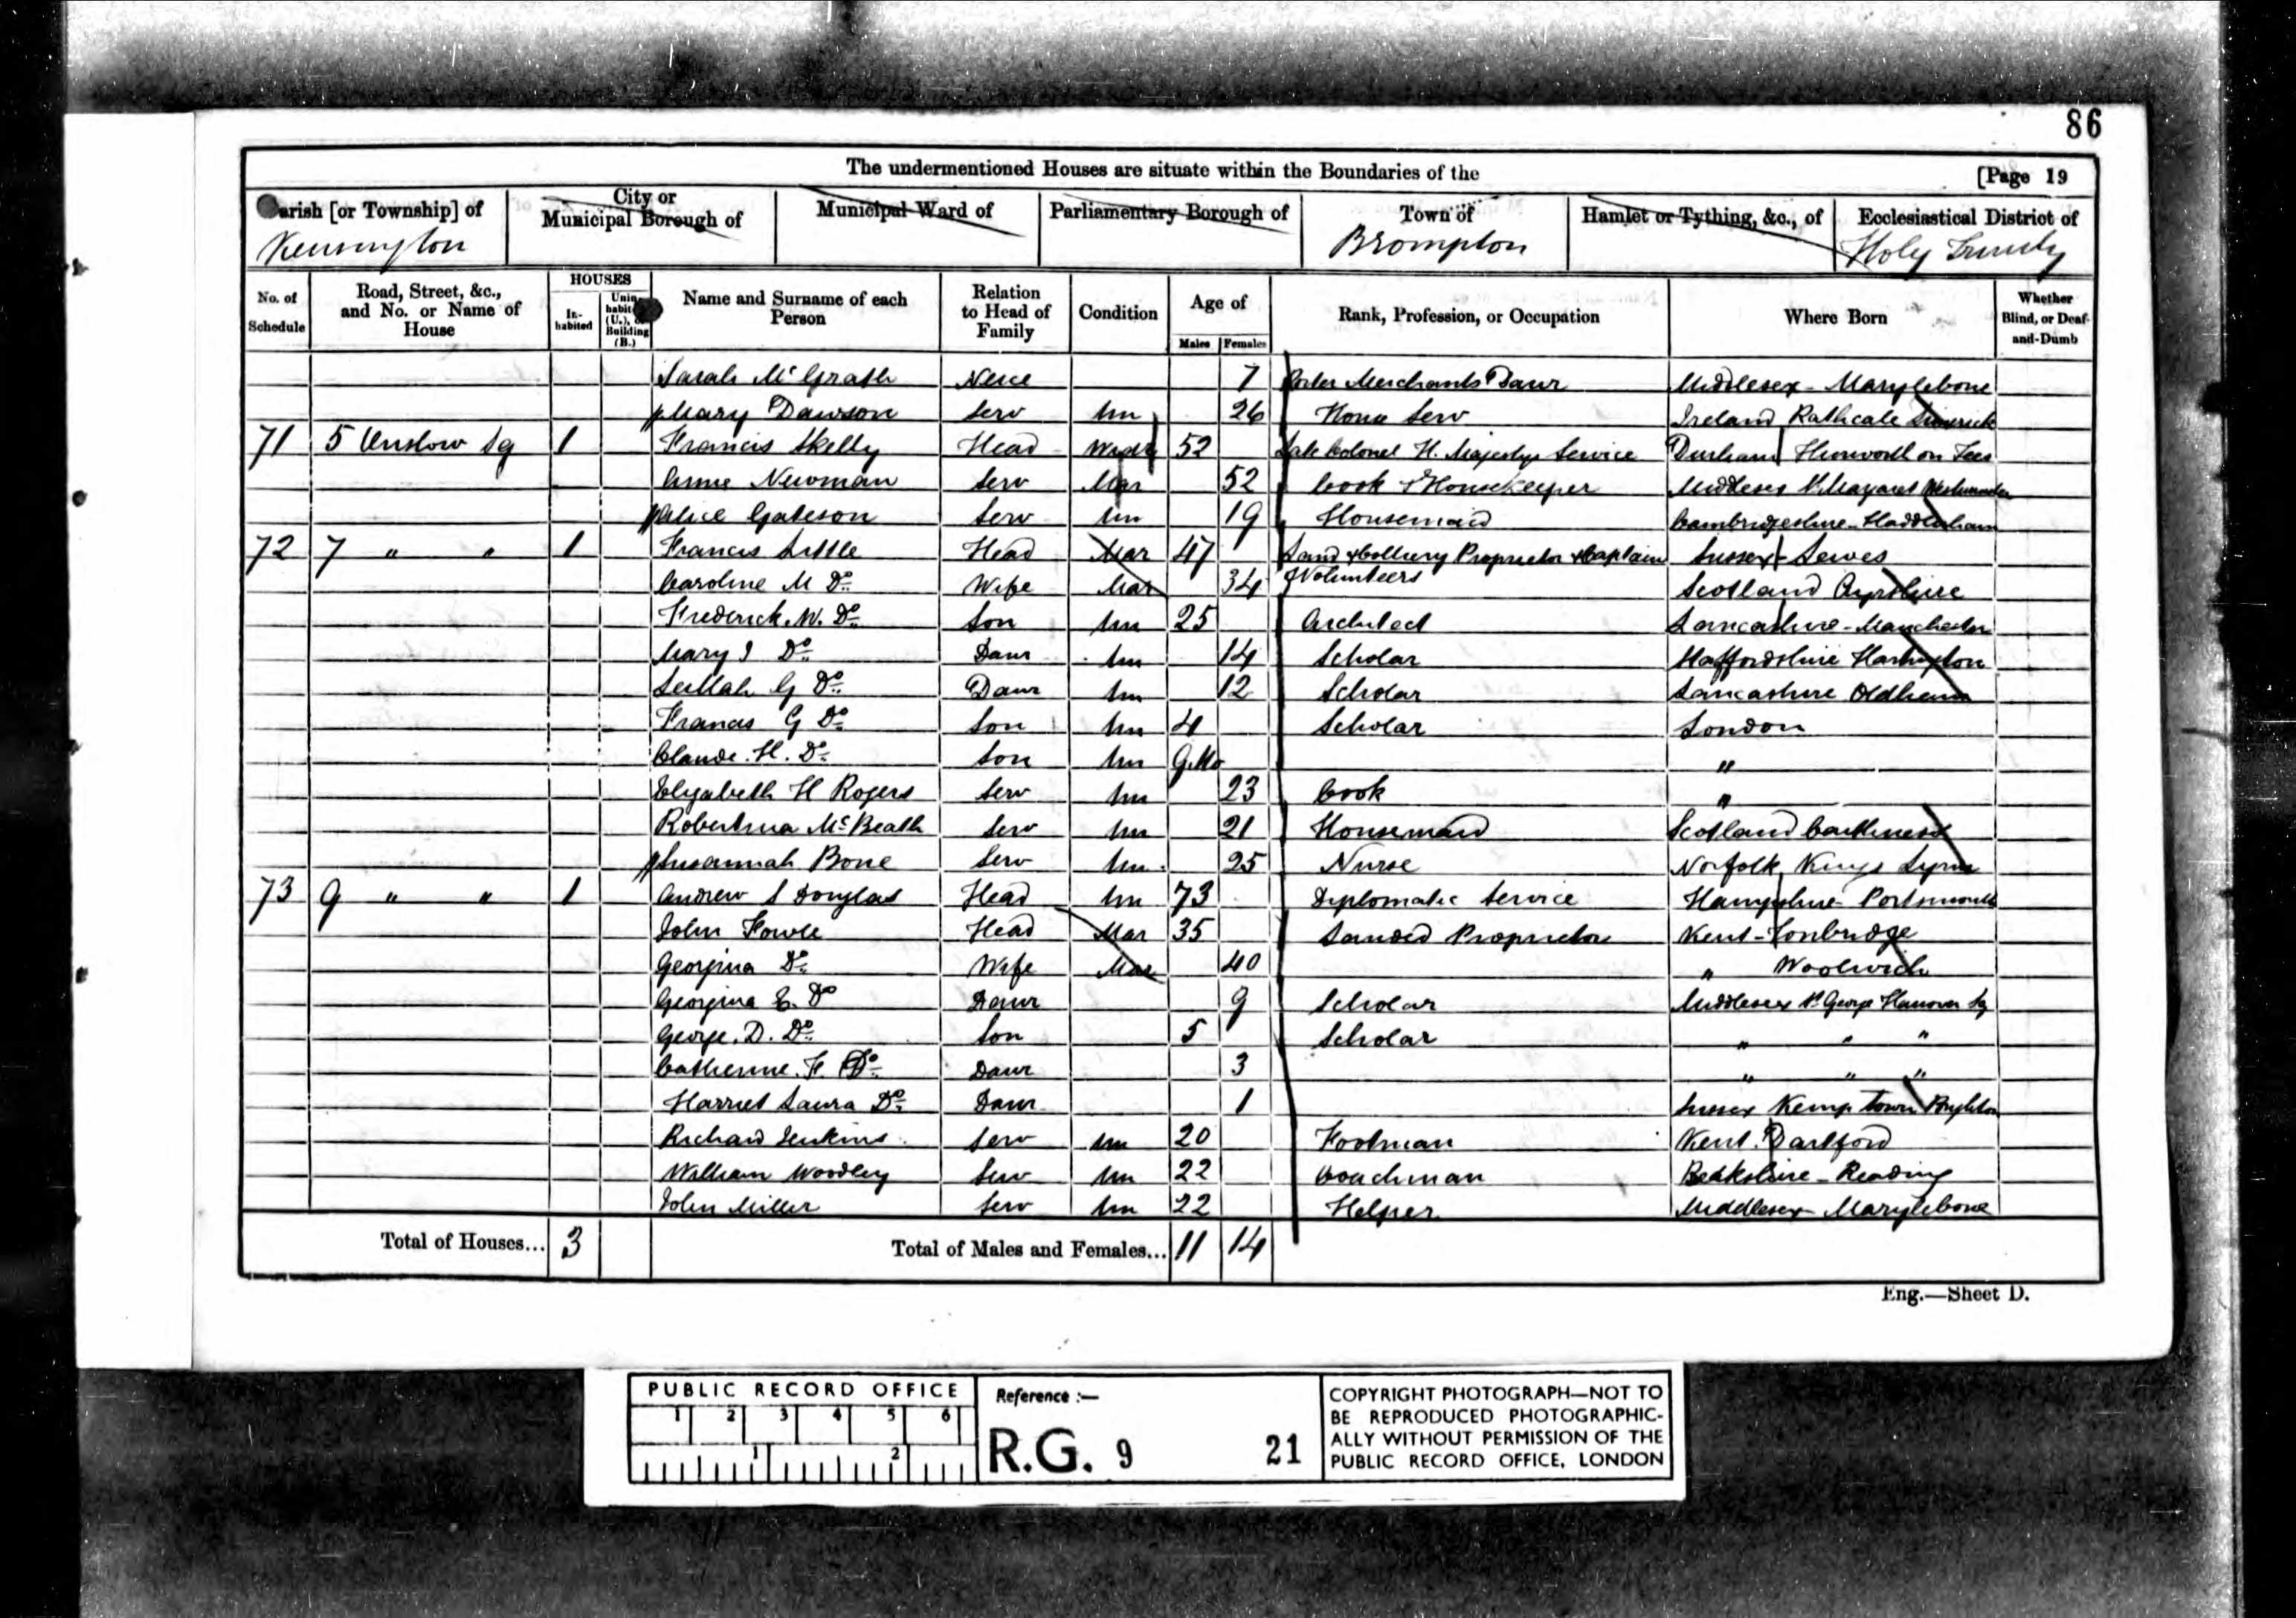 86
The undermentioned Houses are situate within the Boundaries of the [Page 19
Parish [or Township] of City or Municipal Borough of Municipal Ward of Parliamentary Borough of Town of Hamlet or Tything, &c., of Ecclesiastical District of
Kensington Brompton Holy Trinity
No. of Schedule Road, Street, &c., and No. or Name of House HOUSES In-habited Unin-habited (U.), or Building (B.) Name and Surname of each Person Relation to Head of Family Condition Age of Males Females Rank, Profession, or Occupation Where Born Whether Blind, or Deaf-and-Dumb
Sarah McGrath Neice 7 Merchants Daur Middlesex - Marylebone
Mary Dawson Serv Un 26 House Serv Ireland Rathcale Limerick
71 5 Onslow Sq 1 Francis Skelly Head Widr 52 Late Colonel H. Majestys Service Durham Hurworth on Tees
Anne Newman Serv Mar 52 Cook & Housekeeper Middlesex St Margaret Westminster
Alice Gateson Serv Un 19 Housemaid Cambridgeshire - Haddenham
72 7 " " 1 Francis Little Head Mar 47 Land & Colliery Proprietor & Captain Sussex Lewes
Caroline M Do Wife Mar 34 Volunteers Scotland Ayrshire
Frederick W. Do Son Un 25 Architect Lancashire - Manchester
Mary I Do Daur Un 14 Scholar Staffordshire
G Do Daur Un 12 Scholar Lancashire Oldham
Francis G Do Son Un 4 Scholar London
Claude H. Do Son Un 9 Mo "
Elizabeth H Rogers Serv Un 23 Cook "
Robertina McBeath Serv Un 21 Housemaid Scotland Caithness
Susannah Bone Serv Un 25 Nurse Norfolk Kings Lynn
73 9 " " 1 Andrew S Douglas Head Un 73 Diplomatic Service Hampshire - Portsmouth
John Fowle Head Mar 35 Landed Proprietor Kent - Tonbridge
Georgina Do Wife Mar 40 " Woolwich
Georgina E. Do Daur 9 Scholar Middlesex St George Hanover Sq
George. D. Do Son 5 Scholar " " "
Catherine. F. Do Daur 3 " " "
Harriet Laura Do Daur 1 Sussex Kemp Town Brighton
Richard Jenkins Serv Un 20 Footman Kent. Dartford
William Woodley Serv Un 22 Coachman Berkshire - Reading
John Miller Serv Un 22 Helper Middlesex Marylebone
Total of Houses... 3 Total of Males and Females... 11 14
Eng.—Sheet D.
PUBLIC RECORD OFFICE
1 2 3 4 5 6
1 2
Reference :—
R.G. 9 21
COPYRIGHT PHOTOGRAPH—NOT TO
BE REPRODUCED PHOTOGRAPHIC-
ALLY WITHOUT PERMISSION OF THE
PUBLIC RECORD OFFICE, LONDON